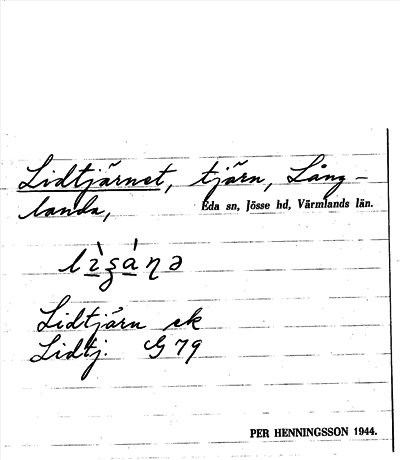 Lidtjärnet, tjärn, Lång-
landa, Eda sn, Jösse hd, Värmlands län.
Lidtjärn ek
Lidtj. G 79
PER HENNINGSSON 1944.